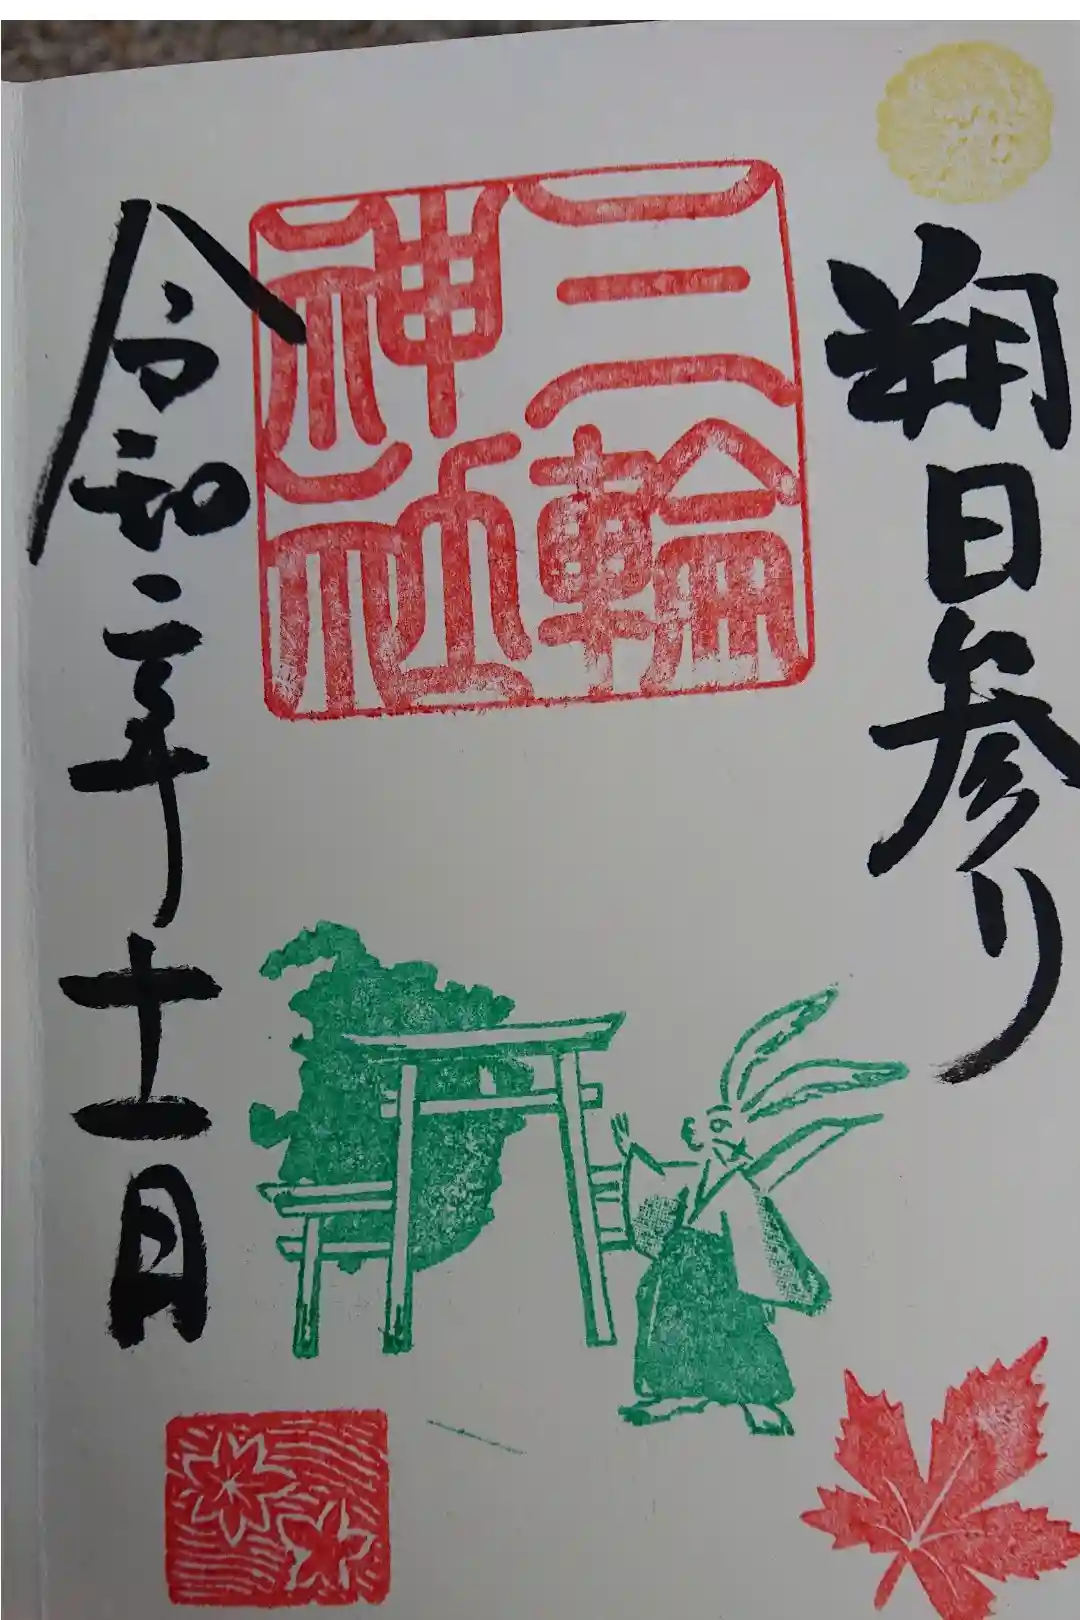 朔日参り
三輪
神社
令和二年十一月